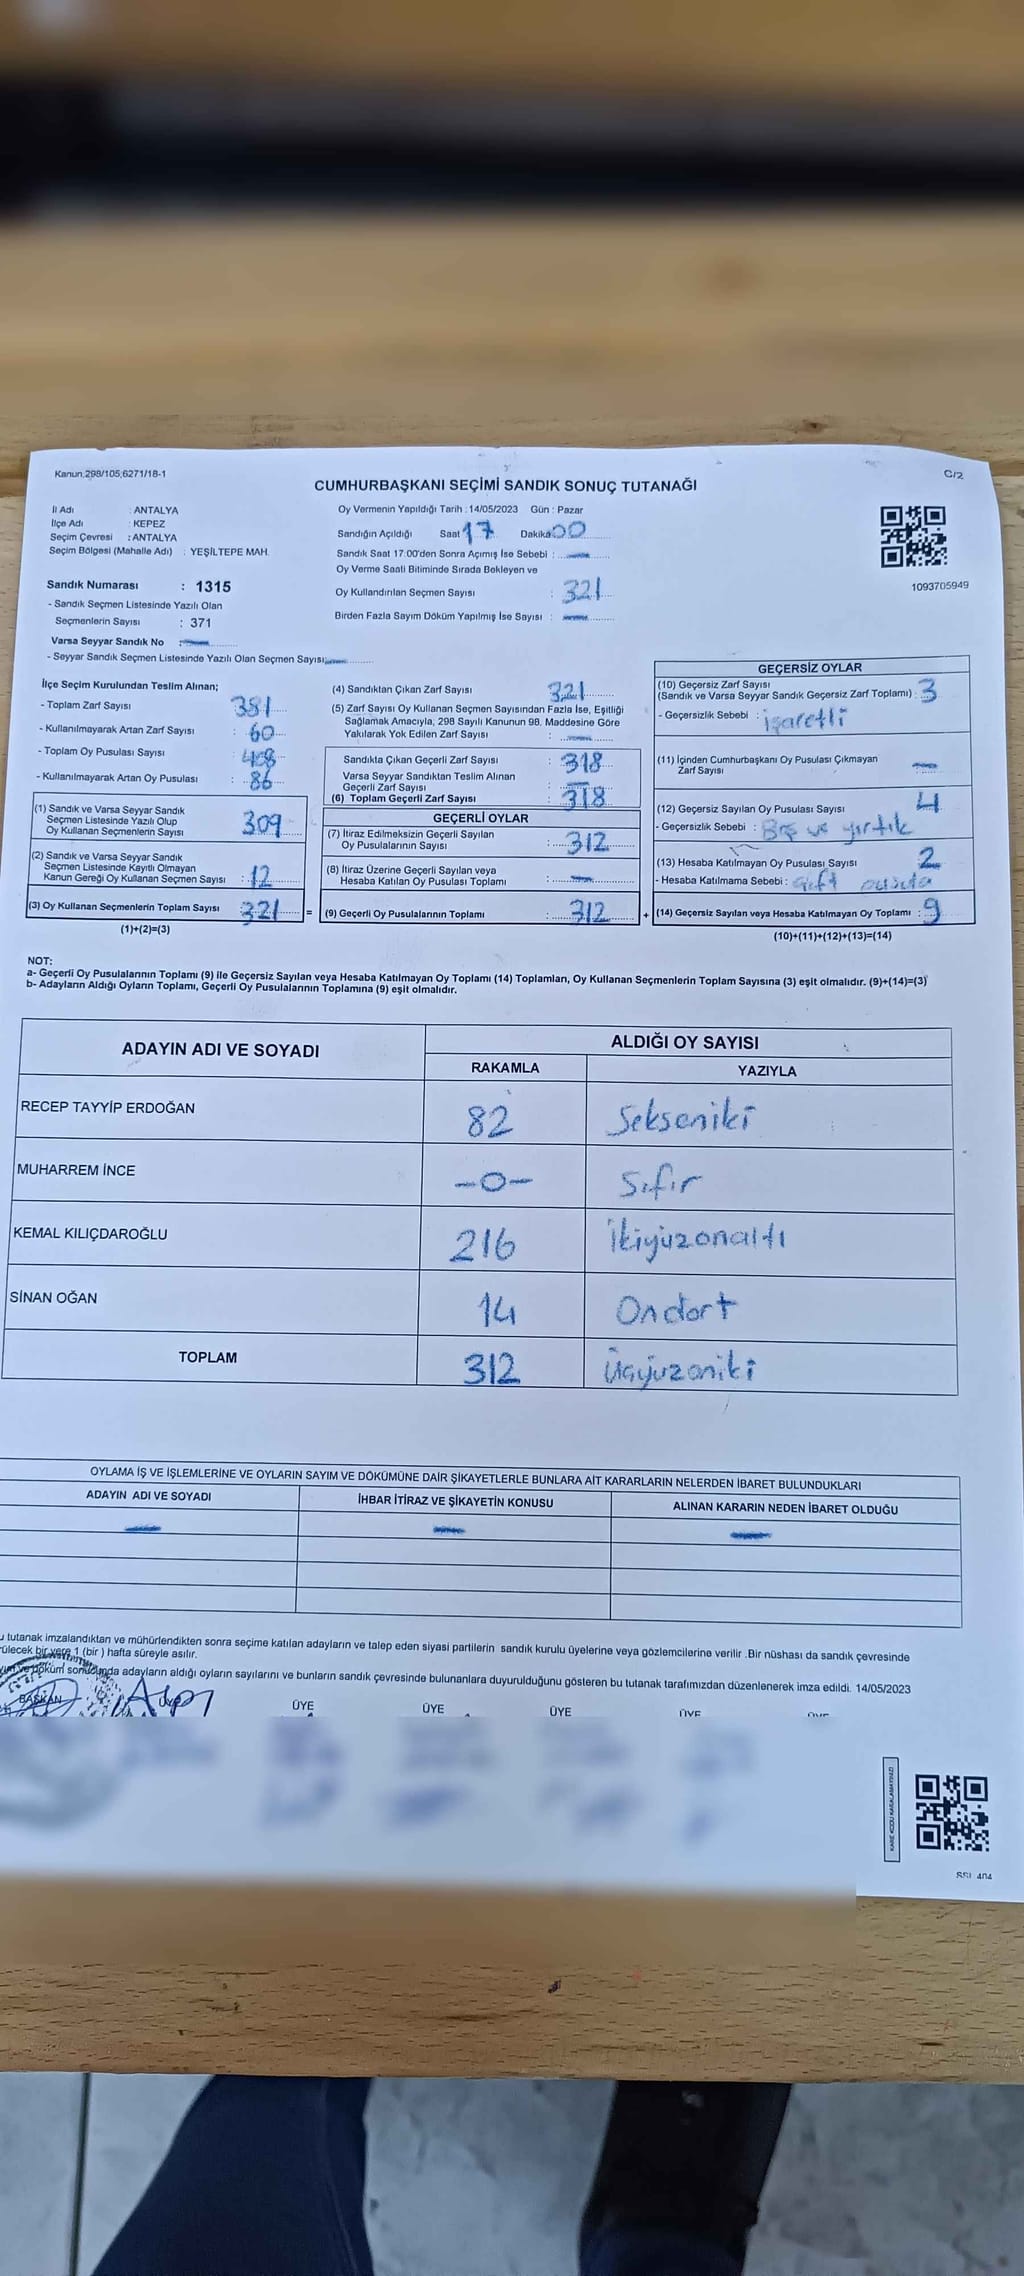 Kanun,298/105,6271/18-1
C/2
CUMHURBAŞKANI SEÇİMİ SANDIK SONUÇ TUTANAĞI
İl Adı : ANTALYA
İlçe Adı : KEPEZ
Seçim Çevresi : ANTALYA
Seçim Bölgesi (Mahalle Adı) : YEŞİLTEPE MAH.
Sandık Numarası : 1315
- Sandık Seçmen Listesinde Yazılı Olan
Seçmenlerin Sayısı : 371
Varsa Seyyar Sandık No :
- Seyyar Sandık Seçmen Listesinde Yazılı Olan Seçmen Sayısı:
Oy Vermenin Yapıldığı Tarih : 14/05/2023 Gün : Pazar
Sandığın Açıldığı Saat 17 Dakika 00
Sandık Saat 17:00'den Sonra Açımış İse Sebebi :
Oy Verme Saati Bitiminde Sırada Bekleyen ve
Oy Kullandırılan Seçmen Sayısı : 321
Birden Fazla Sayım Döküm Yapılmış İse Sayısı :
1093705949
İlçe Seçim Kurulundan Teslim Alınan;
- Toplam Zarf Sayısı : 381
- Kullanılmayarak Artan Zarf Sayısı : 60
- Toplam Oy Pusulası Sayısı :
- Kullanılmayarak Artan Oy Pusulası : 86
(1) Sandık ve Varsa Seyyar Sandık
Seçmen Listesinde Yazılı Olup
Oy Kullanan Seçmenlerin Sayısı : 309
(2) Sandık ve Varsa Seyyar Sandık
Seçmen Listesinde Kayıtlı Olmayan
Kanun Gereği Oy Kullanan Seçmen Sayısı : 12
(3) Oy Kullanan Seçmenlerin Toplam Sayısı : 321 =
(1)+(2)=(3)
(4) Sandıktan Çıkan Zarf Sayısı : 321
(5) Zarf Sayısı Oy Kullanan Seçmen Sayısından Fazla İse, Eşitliği
Sağlamak Amacıyla, 298 Sayılı Kanunun 98. Maddesine Göre
Yakılarak Yok Edilen Zarf Sayısı :
Sandıkta Çıkan Geçerli Zarf Sayısı : 318
Varsa Seyyar Sandıktan Teslim Alınan
Geçerli Zarf Sayısı : —
(6) Toplam Geçerli Zarf Sayısı : 318
GEÇERLİ OYLAR
(7) İtiraz Edilmeksizin Geçerli Sayılan
Oy Pusulalarının Sayısı : 312
(8) İtiraz Üzerine Geçerli Sayılan veya
Hesaba Katılan Oy Pusulası Toplamı :
(9) Geçerli Oy Pusulalarının Toplamı : 312 +
GEÇERSİZ OYLAR
(10) Geçersiz Zarf Sayısı
(Sandık ve Varsa Seyyar Sandık Geçersiz Zarf Toplamı) : 3
- Geçersizlik Sebebi : işaretli
(11) İçinden Cumhurbaşkanı Oy Pusulası Çıkmayan
Zarf Sayısı : —
(12) Geçersiz Sayılan Oy Pusulası Sayısı : 4
- Geçersizlik Sebebi : Boş ve yırtık
(13) Hesaba Katılmayan Oy Pusulası Sayısı : 2
- Hesaba Katılmama Sebebi : çift pusula
(14) Geçersiz Sayılan veya Hesaba Katılmayan Oy Toplamı : 9
(10)+(11)+(12)+(13)=(14)
NOT:
a- Geçerli Oy Pusulalarının Toplamı (9) ile Geçersiz Sayılan veya Hesaba Katılmayan Oy Toplamı (14) Toplamları, Oy Kullanan Seçmenlerin Toplam Sayısına (3) eşit olmalıdır. (9)+(14)=(3)
b- Adayların Aldığı Oyların Toplamı, Geçerli Oy Pusulalarının Toplamına (9) eşit olmalıdır.
ADAYIN ADI VE SOYADI
ALDIĞI OY SAYISI
RAKAMLA YAZIYLA
RECEP TAYYİP ERDOĞAN 82 Sekseniki
MUHARREM İNCE -0- Sıfır
KEMAL KILIÇDAROĞLU 216 İkiyüzonaltı
SİNAN OĞAN 14 Ondört
TOPLAM 312 Üçyüzoniki
OYLAMA İŞ VE İŞLEMLERİNE VE OYLARIN SAYIM VE DÖKÜMÜNE DAİR ŞİKAYETLERLE BUNLARA AİT KARARLARIN NELERDEN İBARET BULUNDUKLARI
ADAYIN ADI VE SOYADI İHBAR İTİRAZ VE ŞİKAYETİN KONUSU ALINAN KARARIN NEDEN İBARET OLDUĞU
u tutanak imzalandıktan ve mühürlendikten sonra seçime katılan adayların ve talep eden siyasi partilerin sandık kurulu üyelerine veya gözlemcilerine verilir .Bir nüshası da sandık çevresinde
rülecek bir yere 1 (bir ) hafta süreyle asılır.
döküm sonucunda adayların aldığı oyların sayılarını ve bunların sandık çevresinde bulunanlara duyurulduğunu gösteren bu tutanak tarafımızdan düzenlenerek imza edildi. 14/05/2023
BAŞKAN ÜYE ÜYE ÜYE ÜYE ÜYE ÜYE
KARE KODU KARALAMAYINIZ!